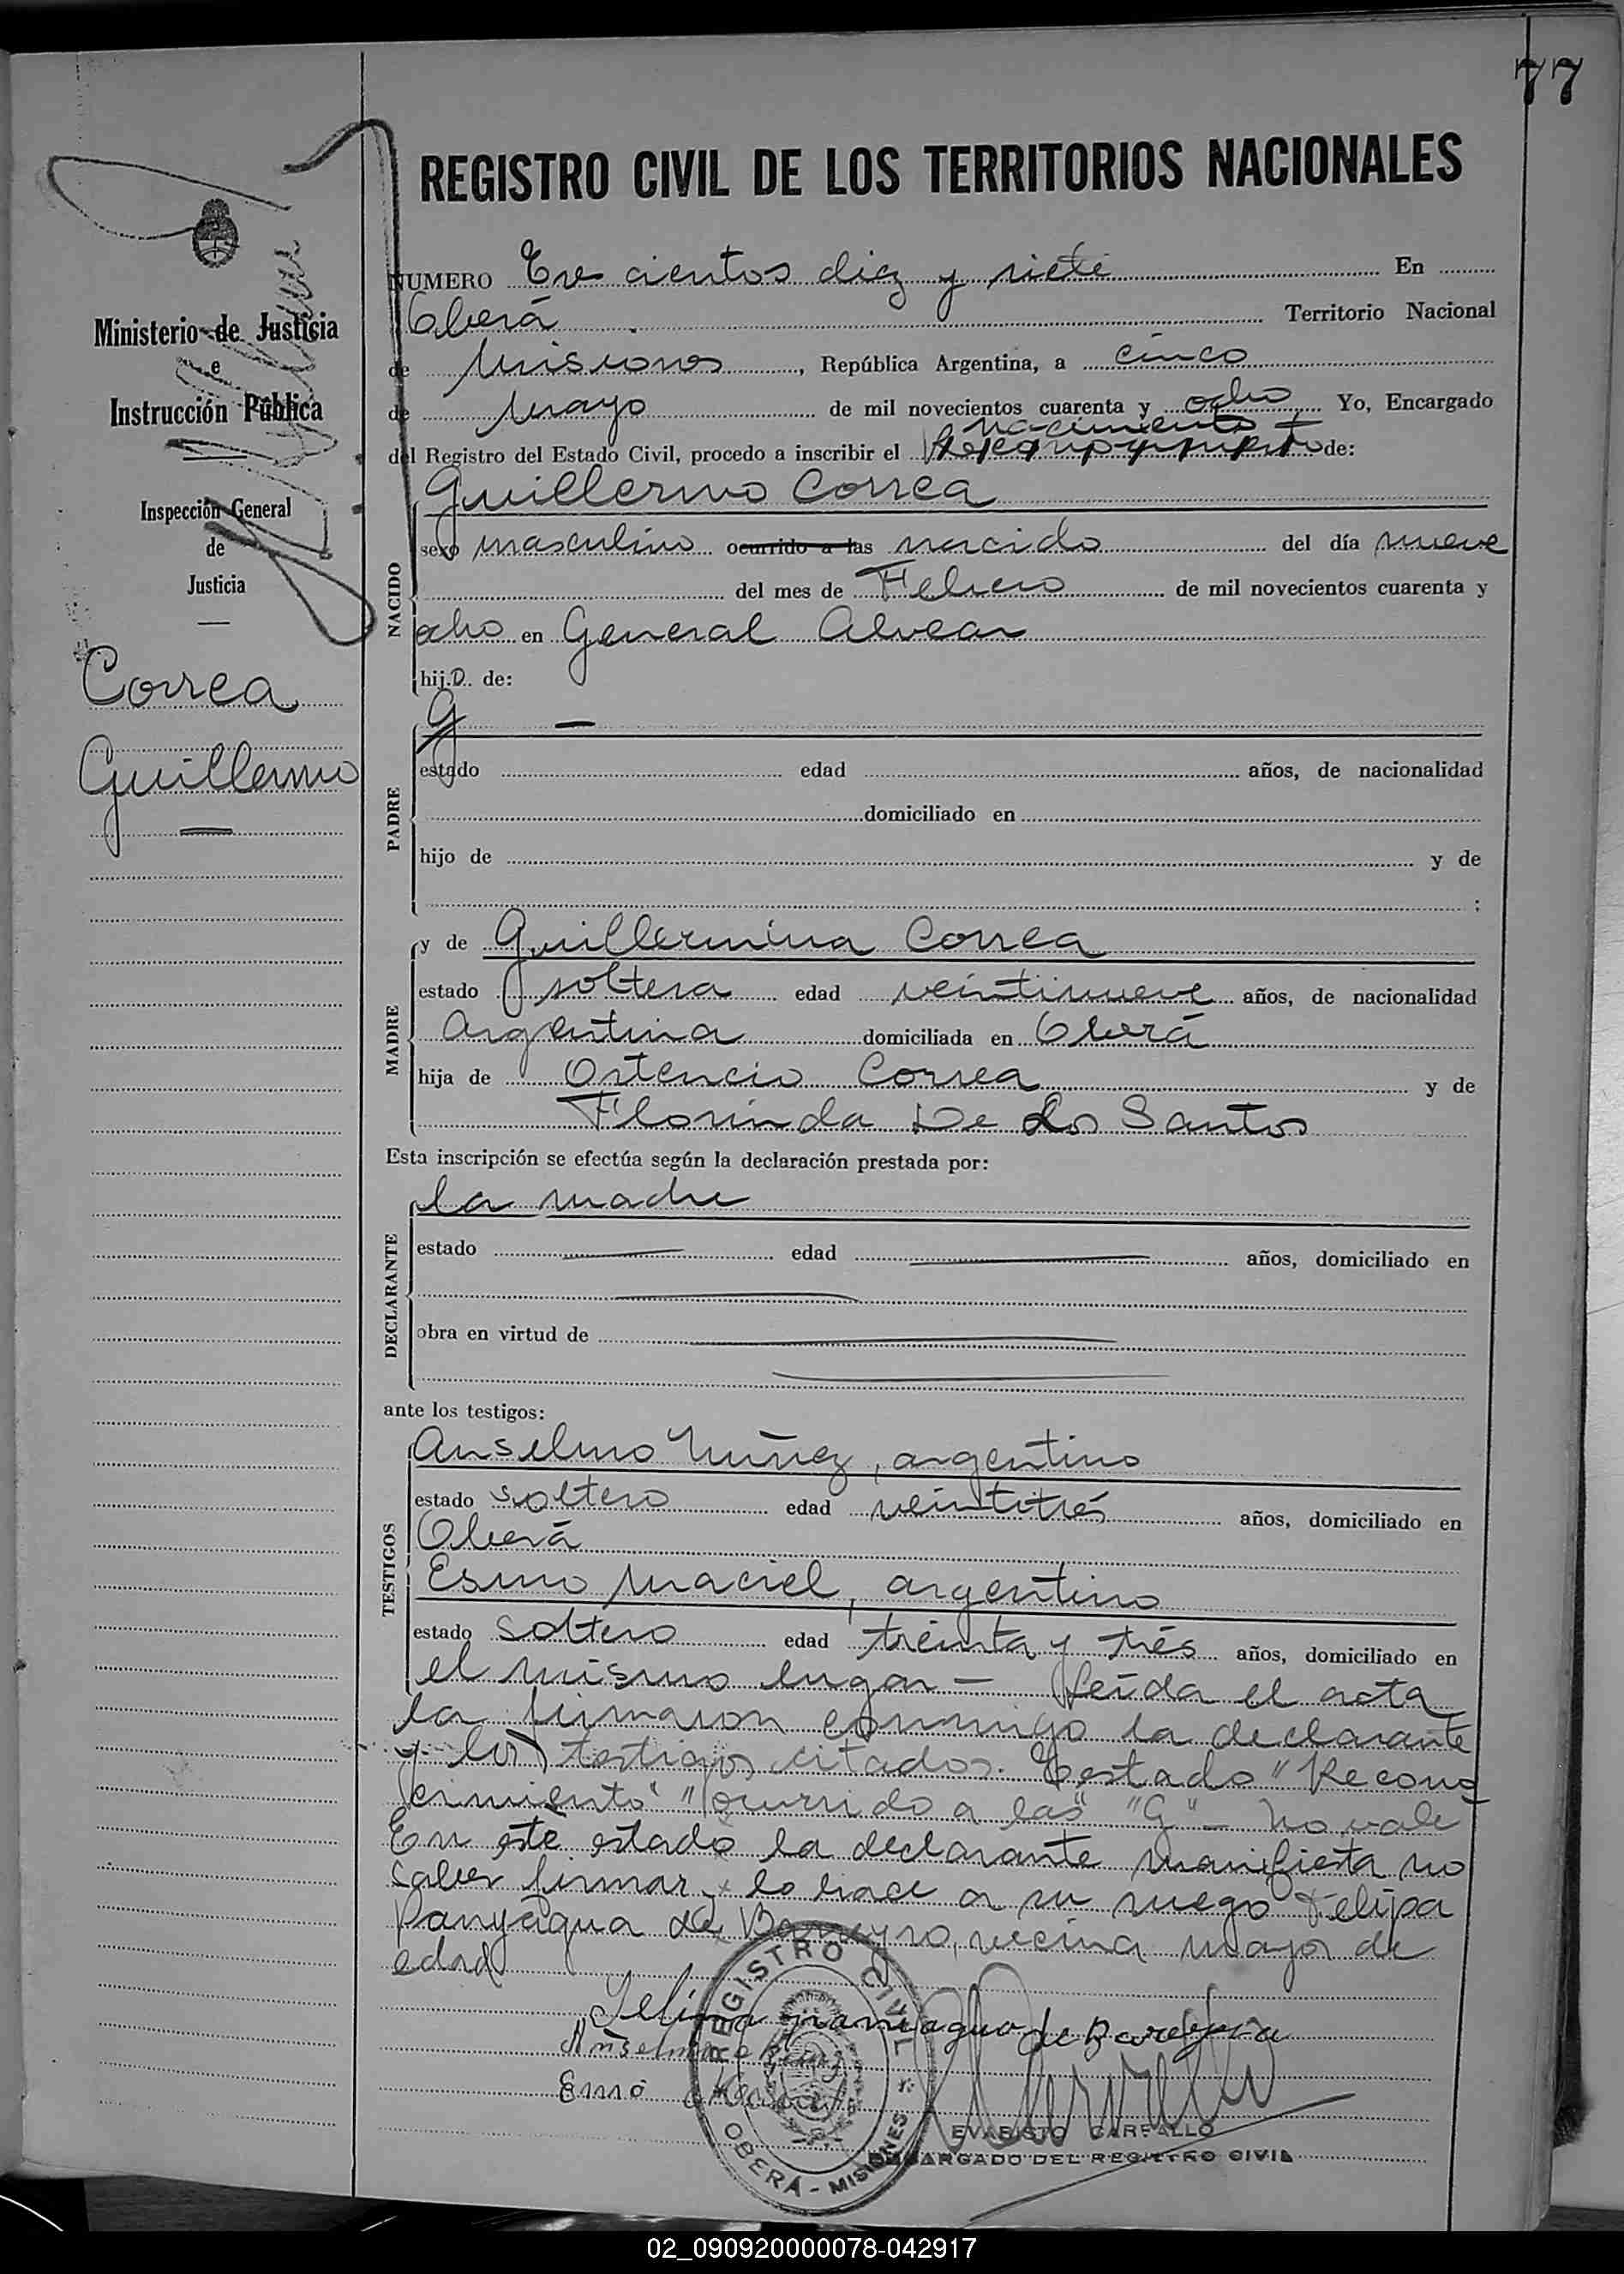 77
REGISTRO CIVIL DE LOS TERRITORIOS NACIONALES
Ministerio de Justicia
e
Instrucción Pública
Inspección General
de
Justicia
Correa
Guillermo
NUMERO Tres cientos diez y siete En
Oberá Territorio Nacional
de Misiones, República Argentina, a cinco
de Mayo de mil novecientos cuarenta y ocho Yo, Encargado
nacimiento
del Registro del Estado Civil, procedo a inscribir el Reconocimiento de:
Guillermo Correa
NACIDO
sexo masculino ocurrido a las nacido del día nueve
del mes de Febrero de mil novecientos cuarenta y
ocho en General Alvear
hijo de:
PADRE
G —
estado edad años, de nacionalidad
domiciliado en
hijo de y de
;
MADRE
y de Guillermina Correa
estado soltera edad veintinueve años, de nacionalidad
Argentina domiciliada en Oberá
hija de Ortencio Correa y de
Florinda De Los Santos
Esta inscripción se efectúa según la declaración prestada por:
DECLARANTE
la madre
estado edad años, domiciliado en
obra en virtud de
ante los testigos:
TESTIGOS
Anselmo Núñez, argentino
estado soltero edad veintitrés años, domiciliado en
Oberá
Esmo Maciel, argentino
estado soltero edad treinta y trés años, domiciliado en
el mismo lugar — Leída el acta
la firmaron conmigo la declarante
y los testigos citados. Testado "Recono
cimiento" "ocurrido a las" "G" – No vale
En este estado la declarante manifiesta no
saber firmar y lo hace a su ruego Felipa
Panyagua de Barreyro, vecina mayor de
edad
Felipa paniagua de Bareyro
Anselmo Nuñez
REGISTRO CIVIL
OBERÁ - MISIONES
EVARISTO CARFALLO
ENCARGADO DEL REGISTRO CIVIL
02_090920000078-042917